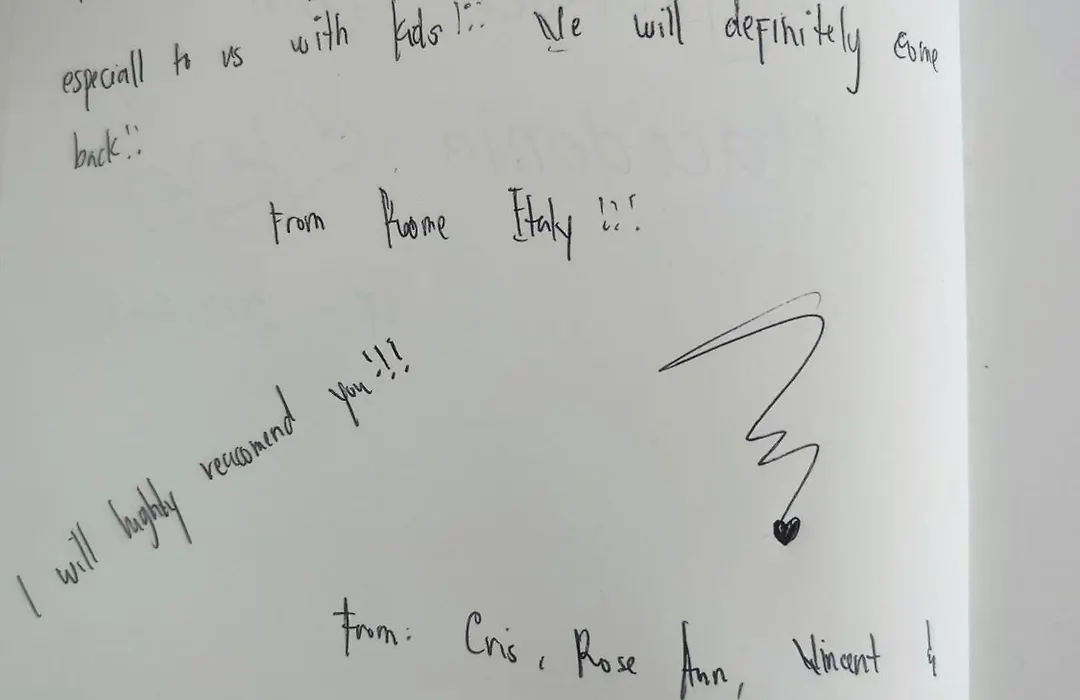 especiall to us with kids!!! We will definitely come
back!!
From Roome Italy !!!
I will highly reccomend you!!!
From: Cris, Rose Ann, Vincent &